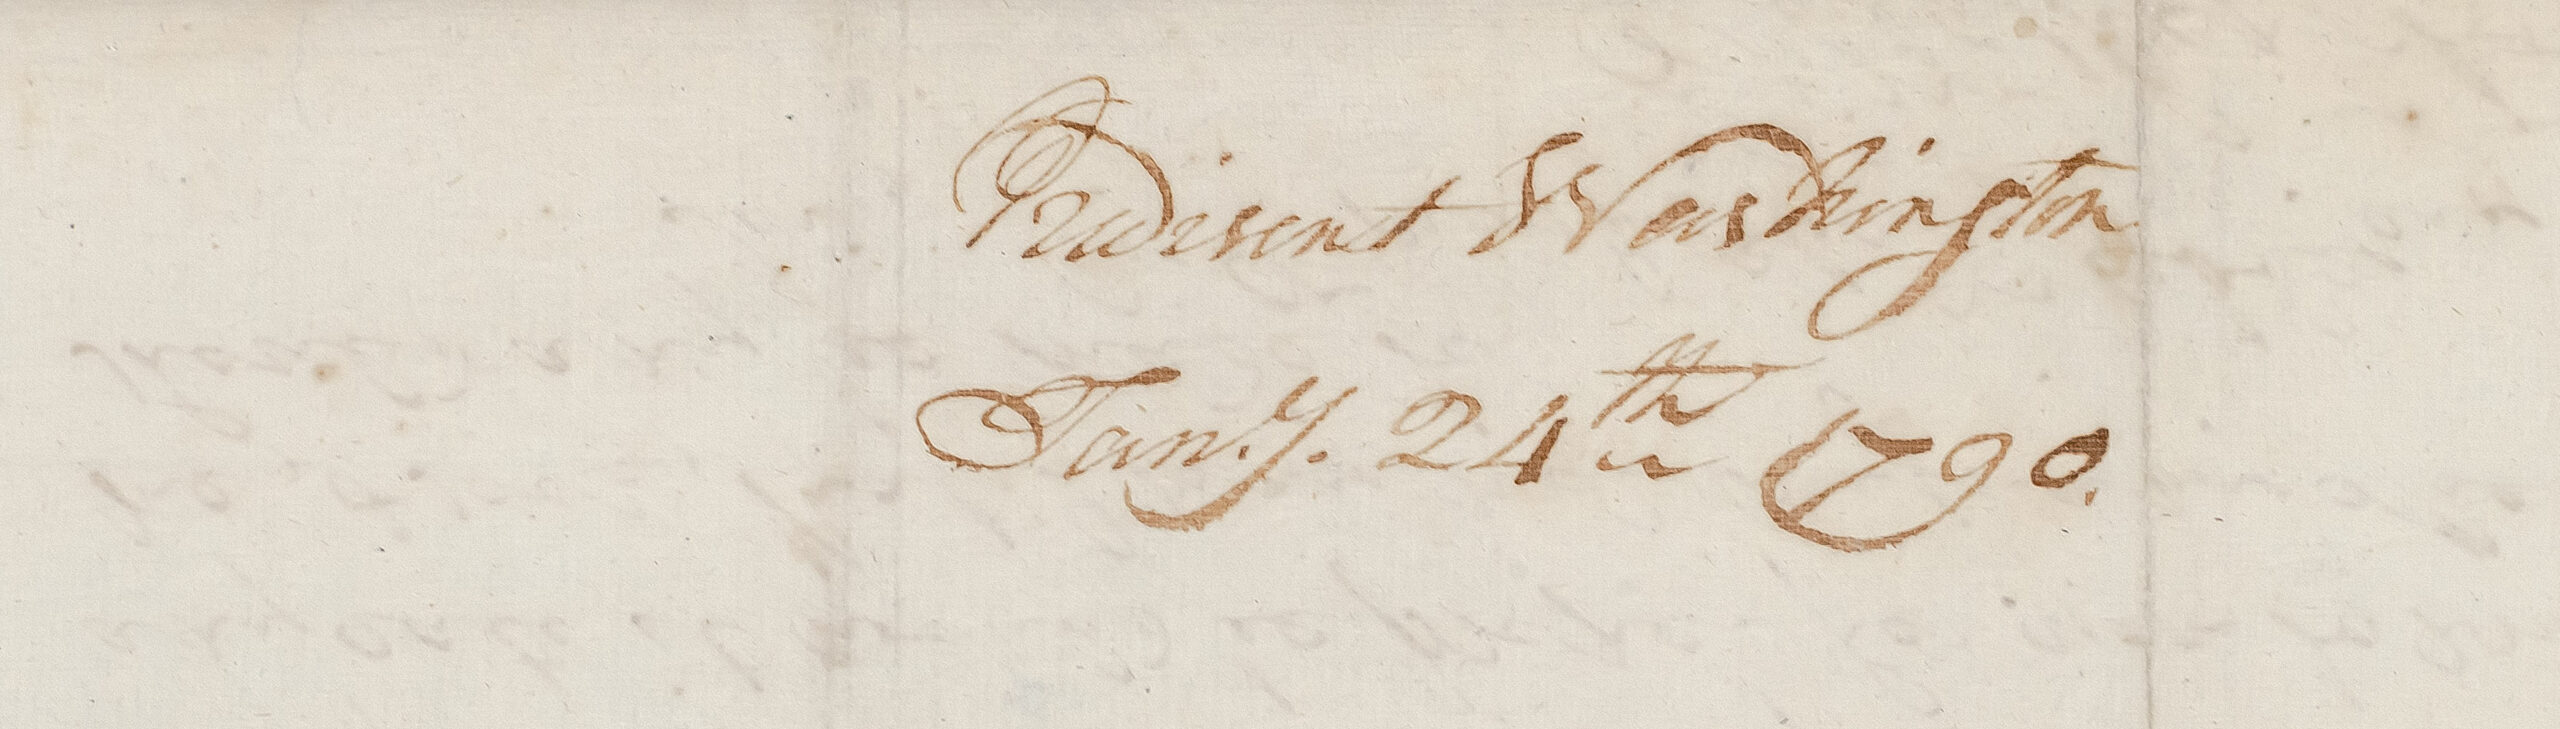 President Washington
Jan.y. 24th 1790.